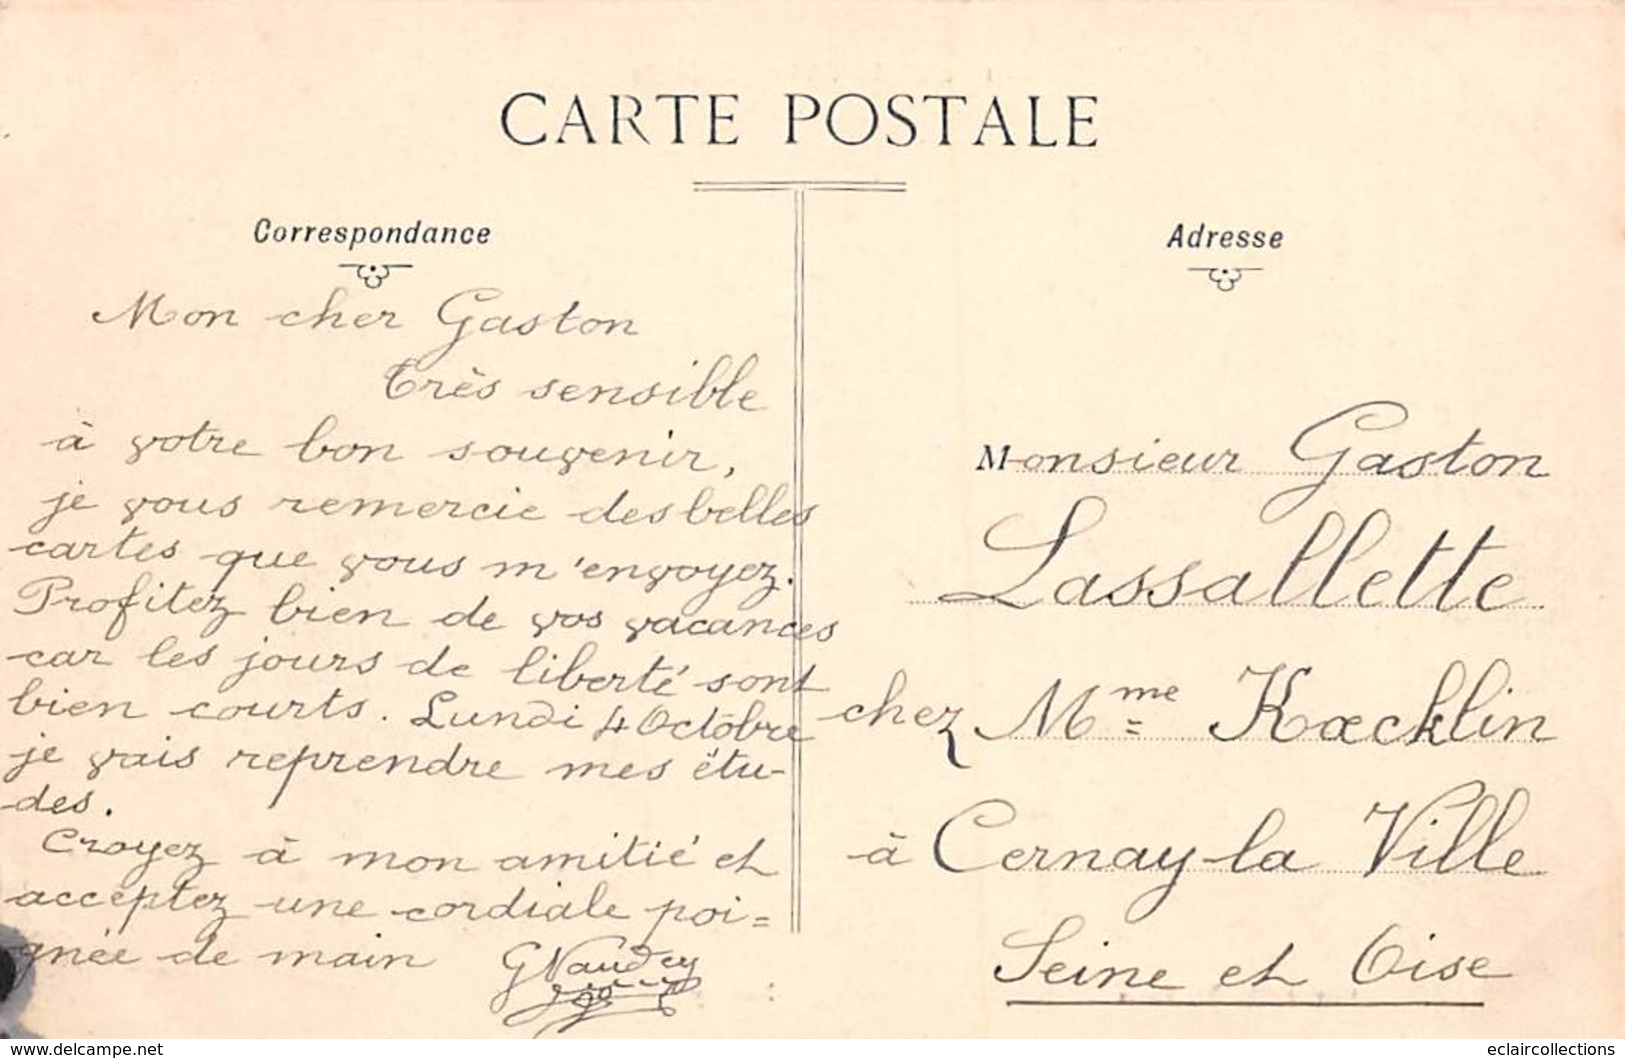 CARTE POSTALE
Correspondance
Mon cher Gaston
Très sensible
à votre bon souvenir,
je vous remercie des belles
cartes que vous m'envoyez.
Profitez bien de vos vacances
car les jours de liberté sont
bien courts. Lundi 4 Octobre
je vais reprendre mes étu-
des.
Croyez à mon amitié et
acceptez une cordiale poi=
gnée de main GNaudey
Adresse
Monsieur Gaston
Lassallette
chez Mme Kœcklin
à Cernay-la Ville
Seine et Oise
www.delcampe.net
eclaircollections